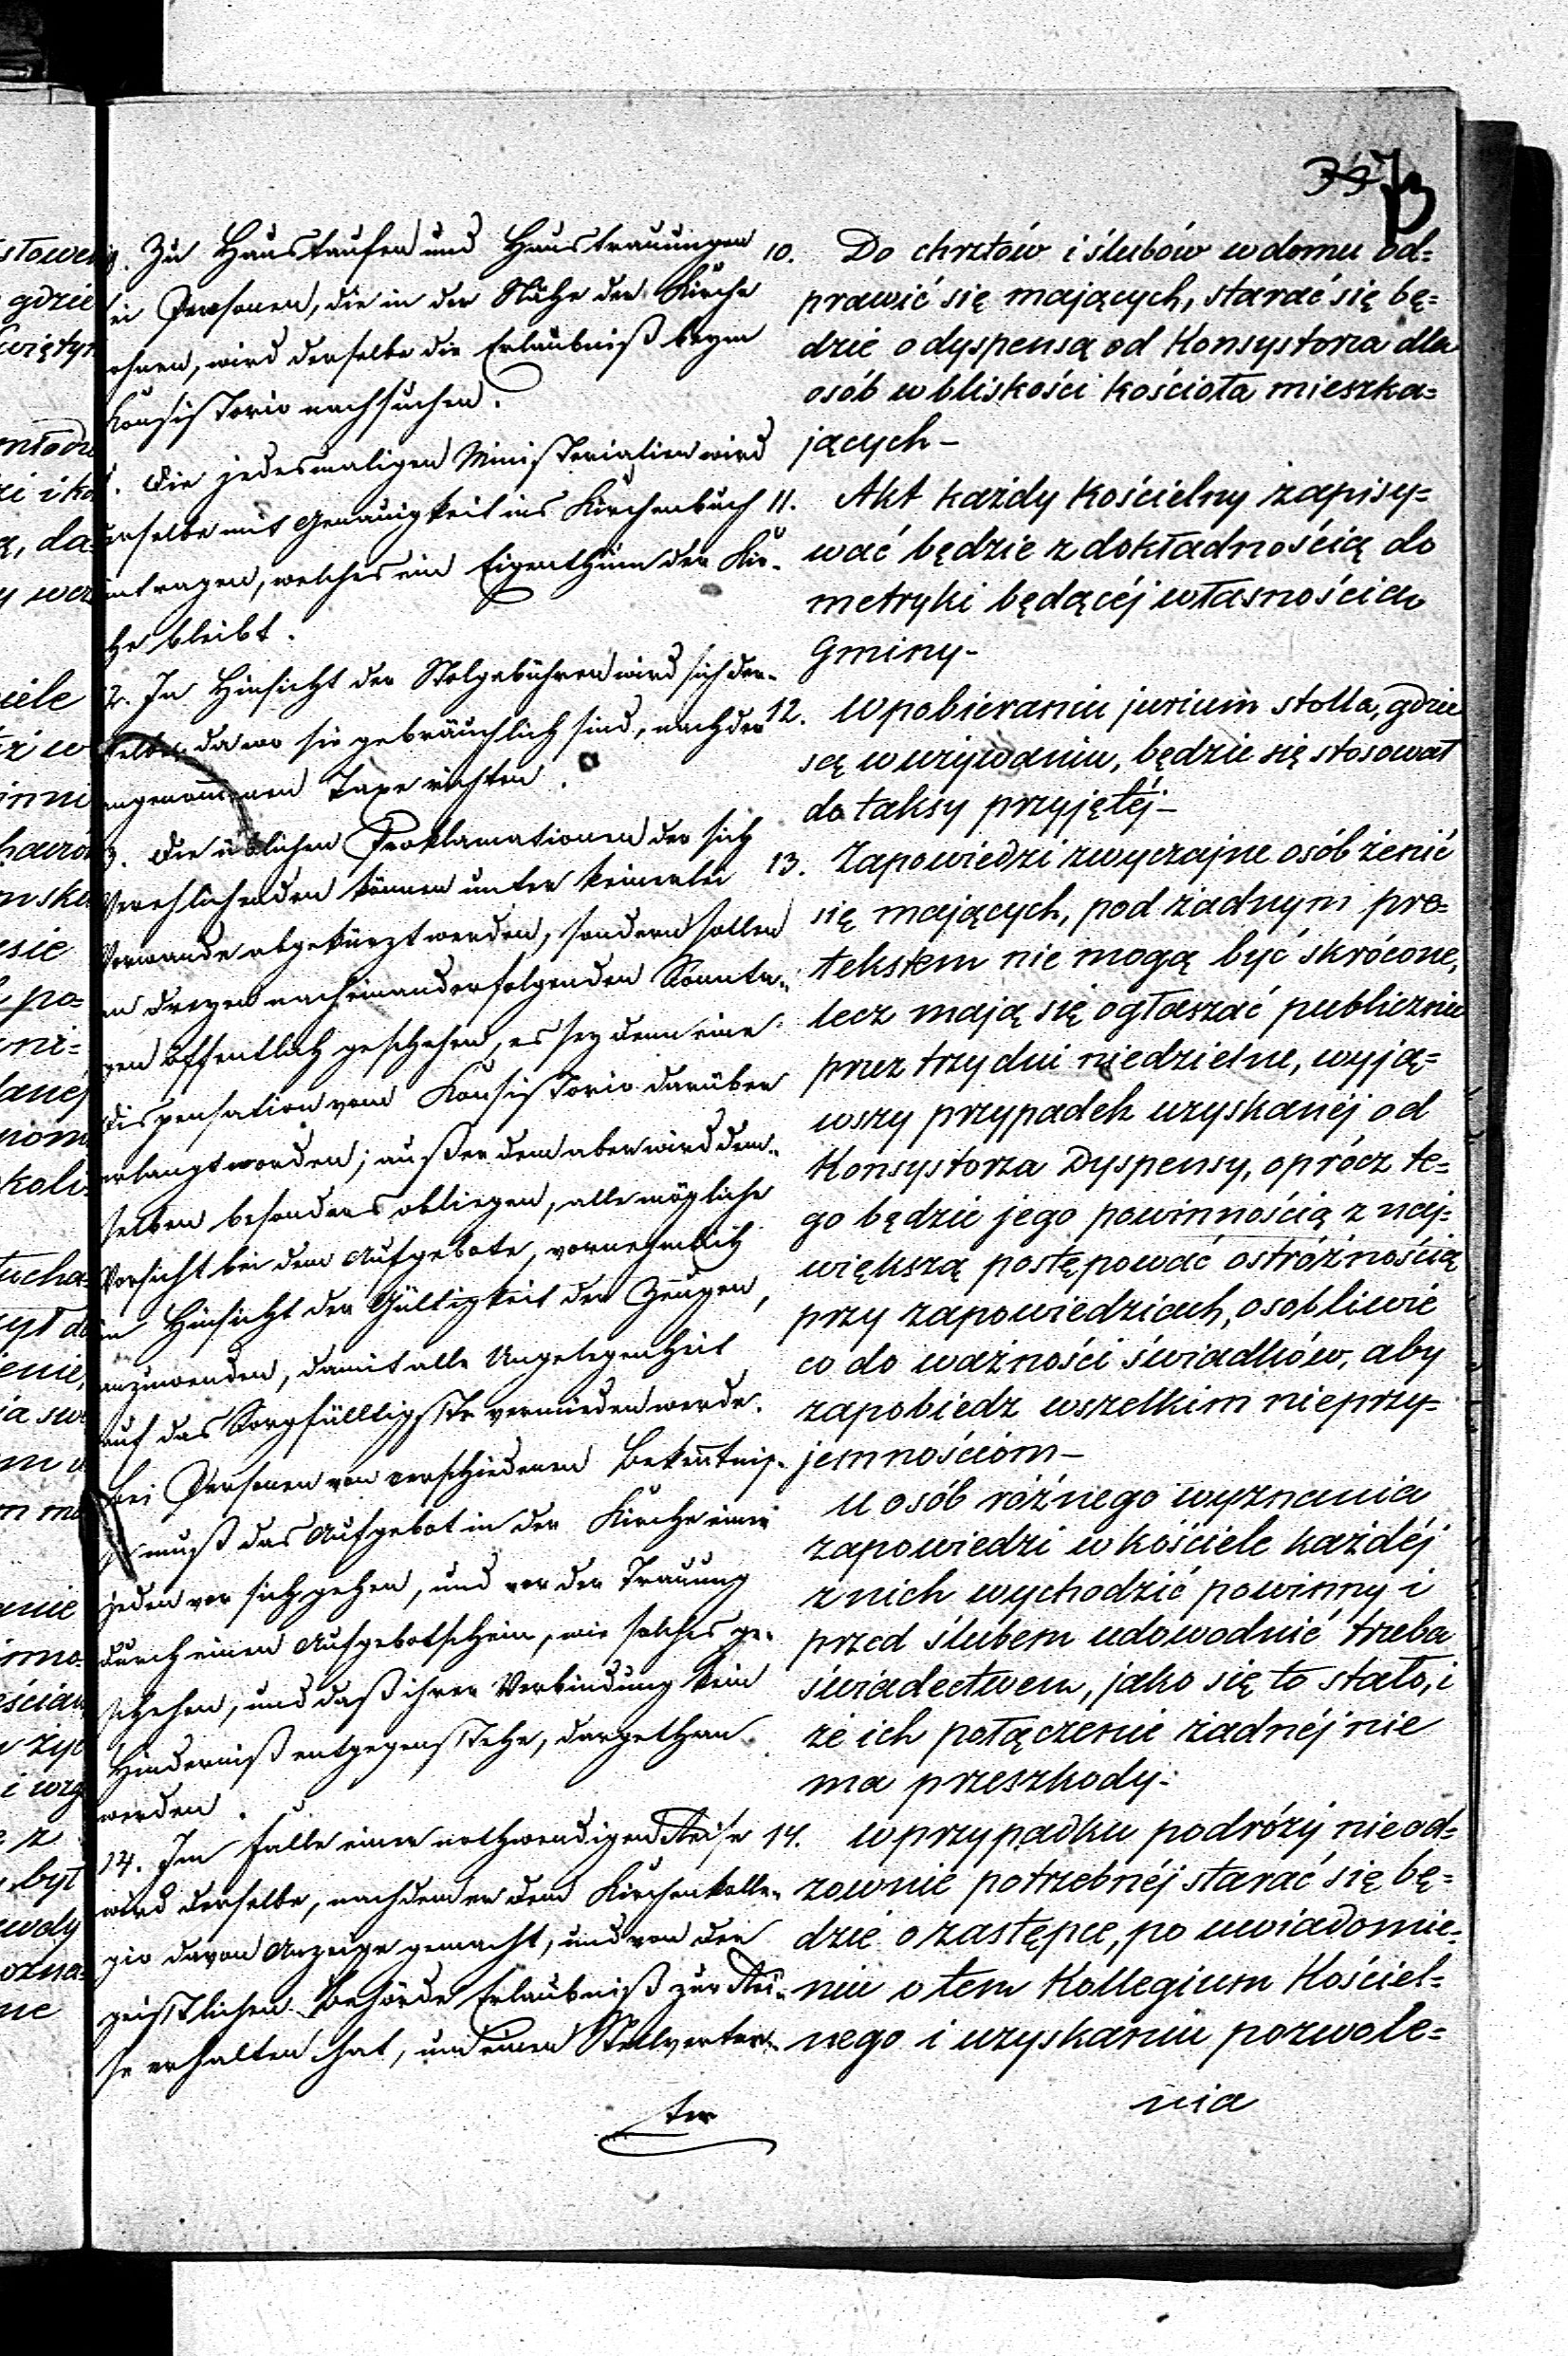 73
10. Zu Haustaufen und Haustrauungen
bei Personen, die in der Nähe der Kirche
wohnen, wird derselbe die Erlaubniß beym
Konsistorio nachsuchen.
11. Die jedesmaligen Ministerialien wird
derselbe mit Genauigkeit ins Kirchenbuch
eintragen, welches ein Eigenthum der Kir-
che bleibt.
12. In Hinsicht der Stolgebühren wird sich der-
selbe da wo sie gebräuchlich sind, nach der
angenommenen Taxe richten.
13. Die üblichen Proklamationen der sich
Verehlichenden können unter keinerlei
Vorwande abgekürzt werden, sondern sollen
an dreyen nacheinanderfolgenden Sonnta-
gen öffentlich geschehen, es sey denn eine
Dispensation vom Konsistorio darüber
erlangt worden; außer dem aber wird dem-
selben besonders obliegen, alle mögliche
Vorsicht bei dem Aufgebote, vornehmlich
in Hinsicht der Gültigkeit der Zeugen,
anzuwenden, damit alle Ungelegenheit
auf das Sorgfältigste vermieden werde.
Bei Personen von verschiedenem Bekenntnis-
se muß das Aufgebot in der Kirche eines
jeden vor sich gehen, und vor der Trauung
durch einen Aufgebotschein, wie solches ge-
schehen, und daß ihrer Verbindung kein
Hinderniß entgegenstehe, dargethan
werden.
14. Im Falle einer nothwendigen Reise
wird derselbe, nachdem er dem Kirchenkolle-
gio davon Anzeige gemacht, und von der
geistlichen Behörde Erlaubniß zur Rei-
se erhalten hat, um einen Stellvertre-
ter
10. Do chrztów i ślubów w domu od=
prawić się mających, starać się bę=
dzie o dyspensą od Konsystorza dla
osób w bliskości kościoła mieszka=
jących -
11. Akt każdy kościelny zapisy=
wać będzie z dokładnością do
metryki będącéj własnościa
Gminy -
12. W pobieraniu jurium stolla, gdzie
są w używaniu, będzie się stosował
do taksy przyjętéj -
13. Zapowiedzi zwyczajne osób żenić
się mających, pod żadnym pre=
tekstem nie mogą być skrócone,
lecz mają się ogłaszać publicznie
przez trzy dni niedzielne, wyją=
wszy przypadek uzyskanéj od
Konsystorza Dyspensy, oprócz te=
go będzie jego powinnością z naj=
większą postępować ostróżnością
przy zapowiedziach, osobliwie
co do ważności świadków, aby
zapobiedz wszelkim nieprzy=
jemnościom -
U osób różnego wyznania
zapowiedzi w kościele każdéj
z nich wychodzić powinny i
przed ślubem udowodnić trzeba
świadectwem, jako się to stało, i
że ich połączenie żadnéj nie
ma przeszkody -
14. W przypadku podróży nieod=
zownie potrzebnéj starać się bę=
dzie o zastępce, po uwiadomie=
niu o tem Kollegium Kościel=
nego i uzyskaniu pozwole=
nia